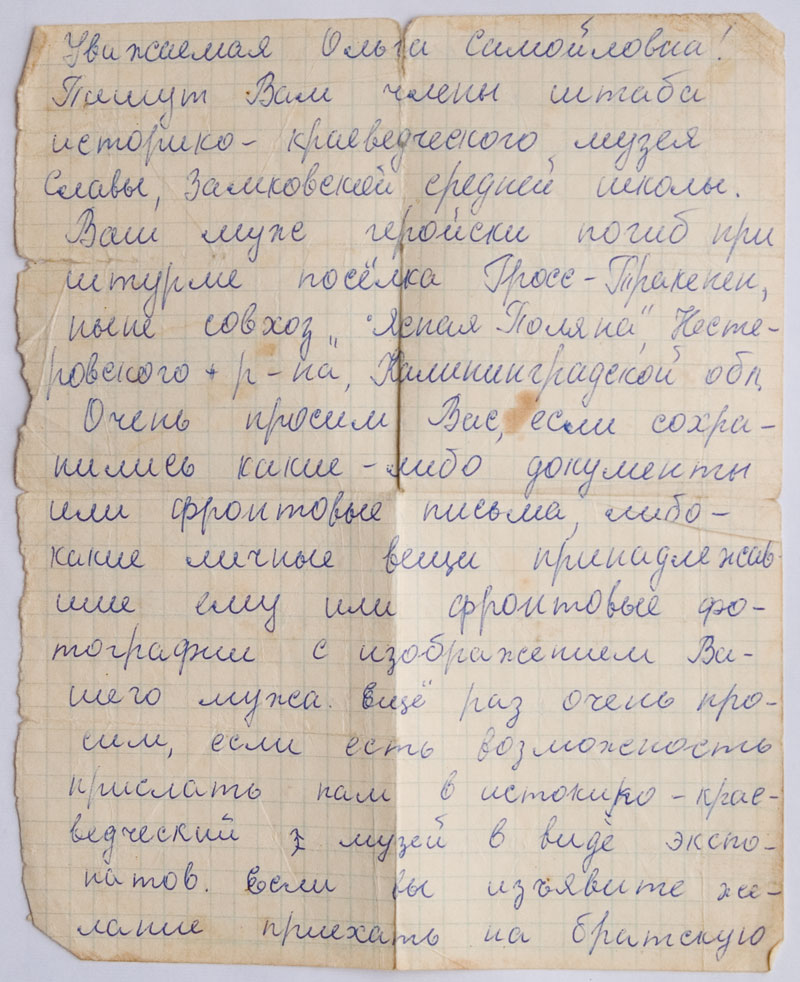 Уважаемая Ольга Самойловна!
Пишут Вам члены штаба
историко- краеведческого музея
Славы, Замковской средней школы.
Ваш муж геройски погиб при
штурме посёлка Гросс-Тракенен,
ныне совхоз „Ясная Поляна", Несте-
ровского р-на, Калининградской обл.
Очень просим Вас, если сохра-
нились какие-либо документы
или фронтовые письма, либо-
какие личные вещи принадлежав
шие ему или фронтовые фо-
тографии с изображением Ва-
шего мужа. Ещё раз очень про-
сим, если есть возможность
прислать нам в истокико-крае-
ведческий музей в виде экспо-
натов. Если вы изъявите же-
лание приехать на братскую